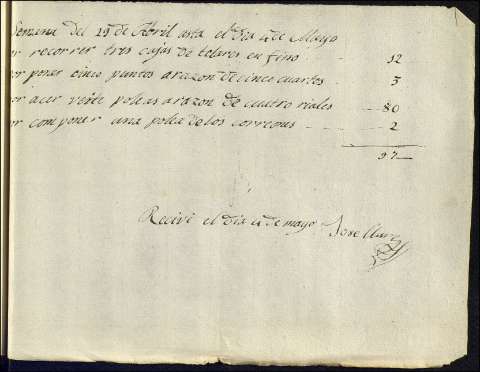 Semana del 29 de Abril asta el dia 4 de Mayo
or recorrer tres cajas de telares en fino 12
or poner cinco puntos arazon de cinco cuartos 3
or acer veite poleas arazon de cuatro riales 80
or componer una polea de los correones 2
97
Recivi el dia 4 de mayo Jose